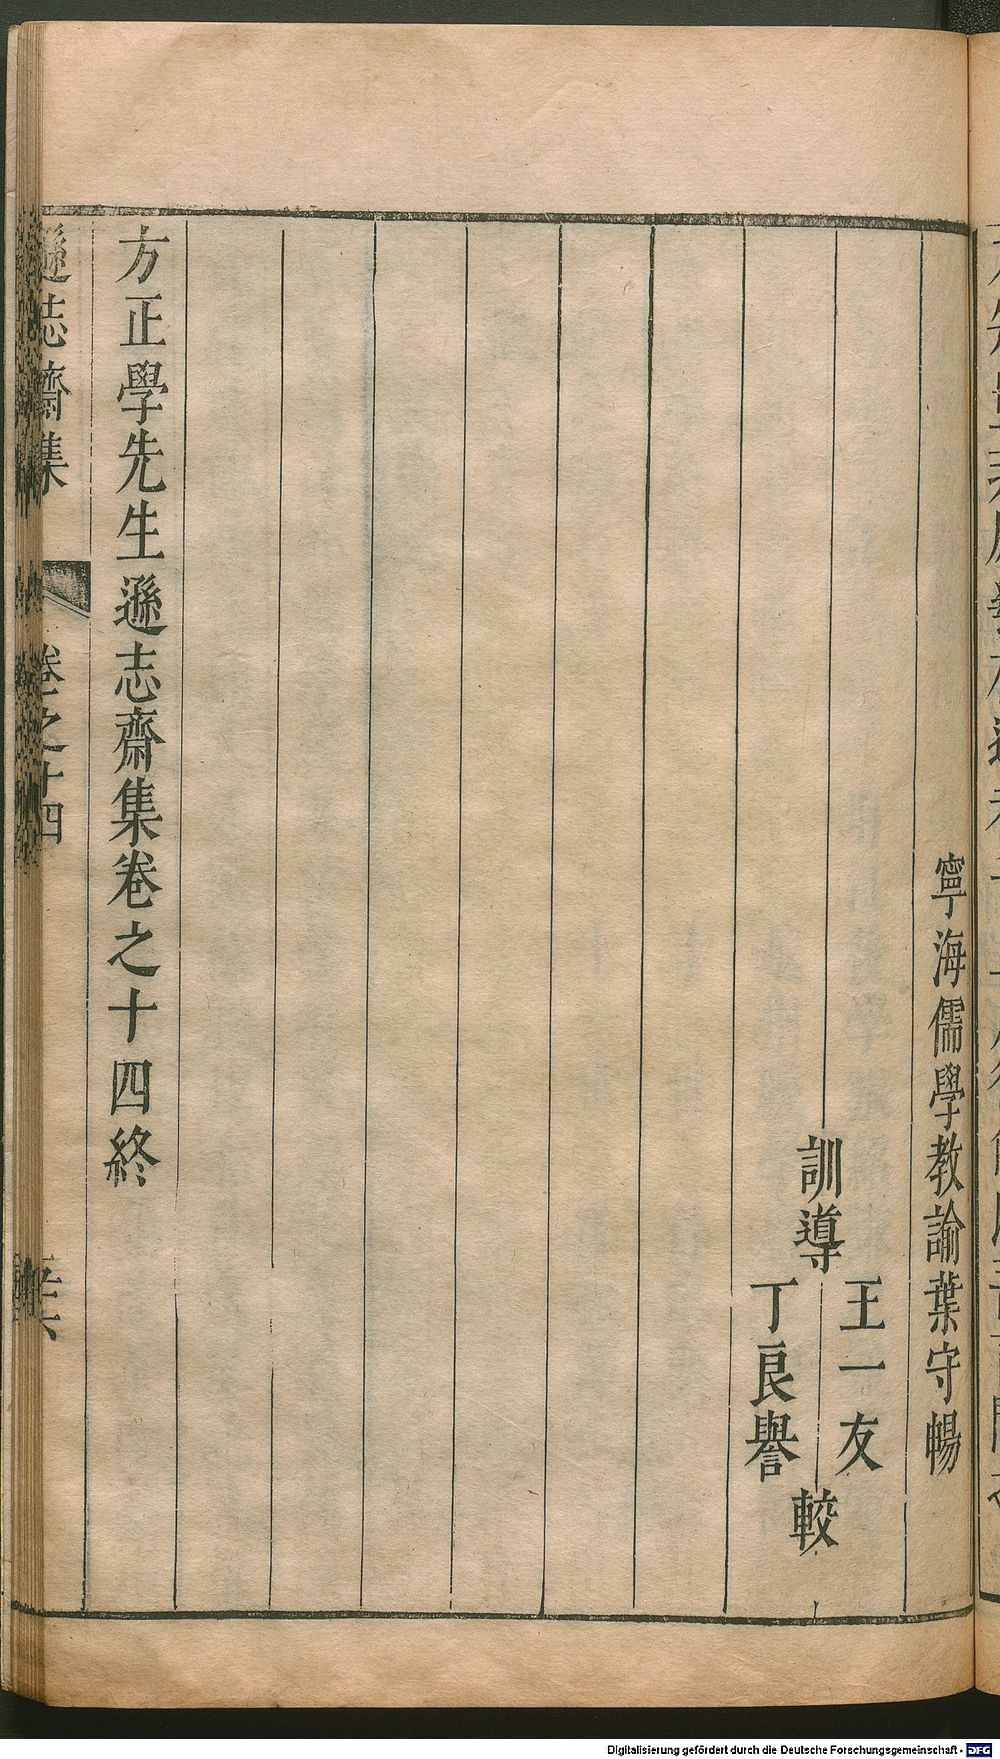 寧海儒學教諭葉守暢
訓導
王一友
丁良譽
較
方正學先生遜志齋集卷之十四終
遜志齋集
卷之十四
Digitalisierung gefördert durch die Deutsche Forschungsgemeinschaft - DFG